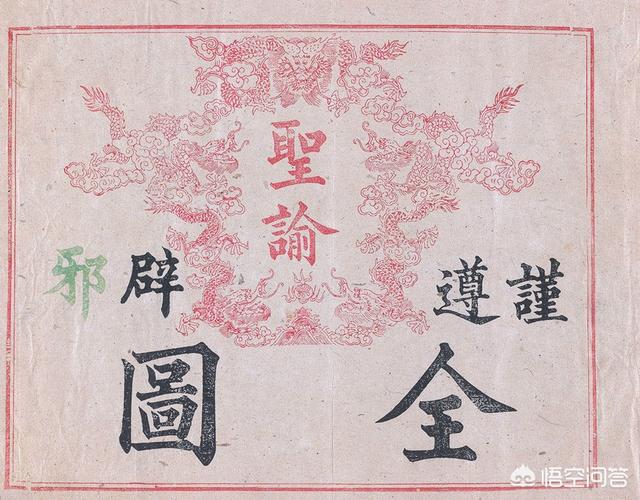 謹遵
聖諭
辟邪
全圖
悟空问答